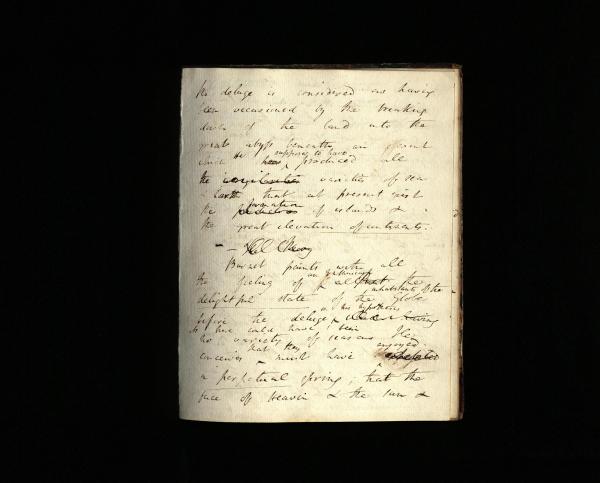 the deluge is considered as having
been occasioned by the breaking
down of the land into the
great abyss beneath, an event
which he supposes to have produced all
the varieties of sea
& earth that at present exist
the formation of islands &
the great elevation of continents.
Burnet paints with all
the feeling of an enthusiast the
delightful state of the inhabitants of the globe
before the deluge
As there could have been
no variety of seasons He
conceives that they must have enjoyed
a perpetual spring, that the
face of Heaven & the sun &